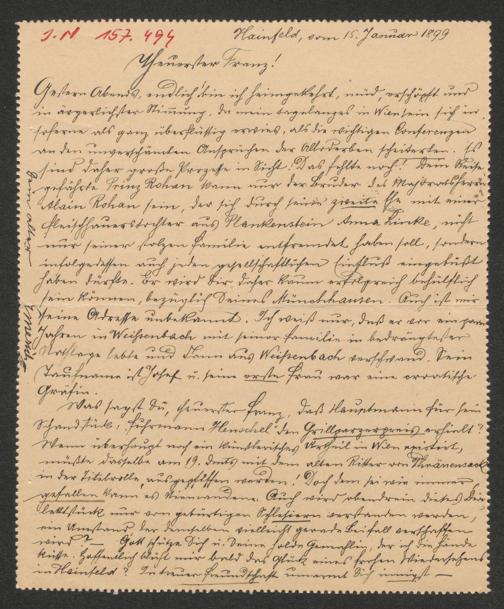 J.N 157.494
Hainfeld, vom 15. Januar 1899
Theuerster Franz!
Gestern Abends endlich bin ich heimgekehrt, müd, erschöpft und
in ärgerlichster Stimmung, da mein tagelanges in Wien sein sich in-
soferne als ganz überflüssig erwies, als die wichtigen Conferenzen
an den unverschämten Ansprüchen der scheiterten. Es
sind daher große Prozesse in Sicht! Das fehlte noch! Dein Reise-
gefährte Prinz Rohan kann nur der Bruder des Majoratsherrn
Alain Rohan sein, der sich durch seine zweite Ehe mit einer
Fleischhauerstochter aus Plankenstein Anna Linke, nicht
nur seiner stolzen Familie entfremdet haben soll, sondern
infolgedessen auch jeden gesellschaftlichen Einfluß eingebüßt
haben dürfte. Er wird Dir daher kaum erfolgreich behülflich
sein können, bezüglich Deines Münchhausen. Auch ist mir
seine Adresse unbekannt. Ich weiß nur, daß er vor ein paar
Jahren in Weißenbach mit seiner Familie in bedrängtester
Nothlage lebte und dann aus Weißenbach verschwand. Sein
Taufname ist Josef u. seine erste Frau war eine croatische
Gräfin.
Was sagst Du, theuerster Franz, daß Hauptmann für sein
Schandstück: Fuhrmann Henschel den Grillparzerpreis erhielt?
Wenn überhaupt noch ein künstlerisches Urtheil in Wien existirt,
müßte dasselbe am 19. dmts mit dem alten Ritter von Thränensack
in der Titelrolle ausgepfiffen werden! Doch dem sei wie immer
gefallen kann es Niemandem. Auch wird obendrein dieses
nur von gebürtigen Schlesiern verstanden werden,
ein Umstand der demselben vielleicht gerade Beifall verschaffen
wird? — Gott schütze Dich u. Deine holde Gemahlin, der ich die Hände
küsse. Hoffentlich blüht mir bald das Glück eines frohen Wiedersehens
in Hainfeld? In treuer Freundschaft umarmt Dich innigst —
Dein alter